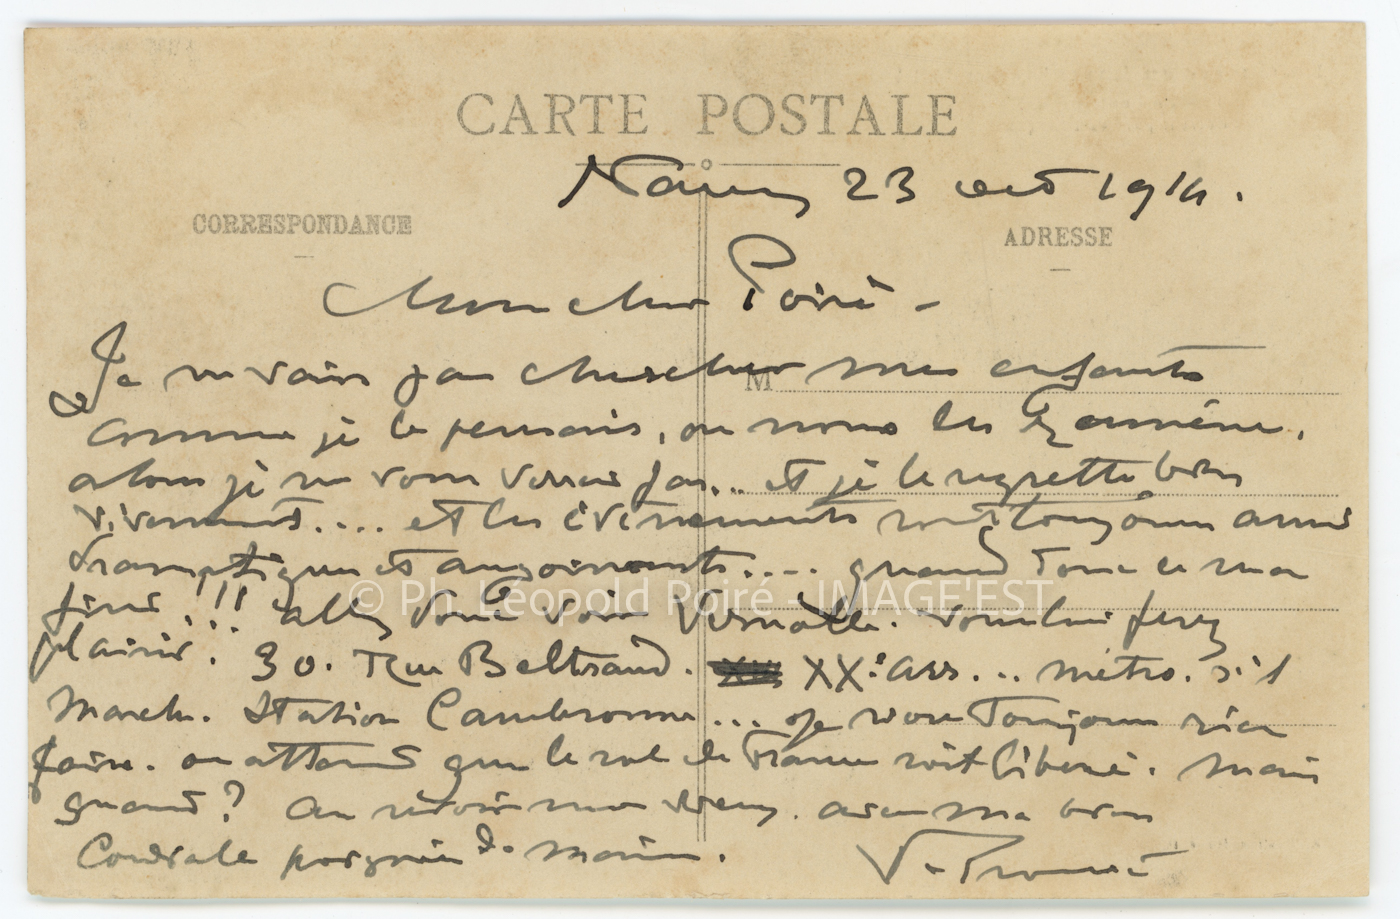 CARTE POSTALE
Nancy 23 oct 1914.
CORRESPONDANCE
ADRESSE
Mon cher Poiré -
Je ne vais pas chercher mes enfants
M
comme je le pensais, on nous les ramène,
alors je ne vous verrai pas... et je le regrette bien
vivement.... et les événements sont toujours aussi
dramatiques et angoissants.... quand donc ce sera
fini!!! allez donc voir Vernolle. vous lui ferez
© Ph. Léopold Poiré - IMAGE'EST
plaisir! 30. Rue Beltrand. XX.e arr... métro. s'il
marche. Station Cambronne... je n'ose toujours rien
faire. on attend que le sol de France soit libéré. mais
quand? au revoir mon vieux. avec ma bien
cordiale poignée de main.
V. Prouvé